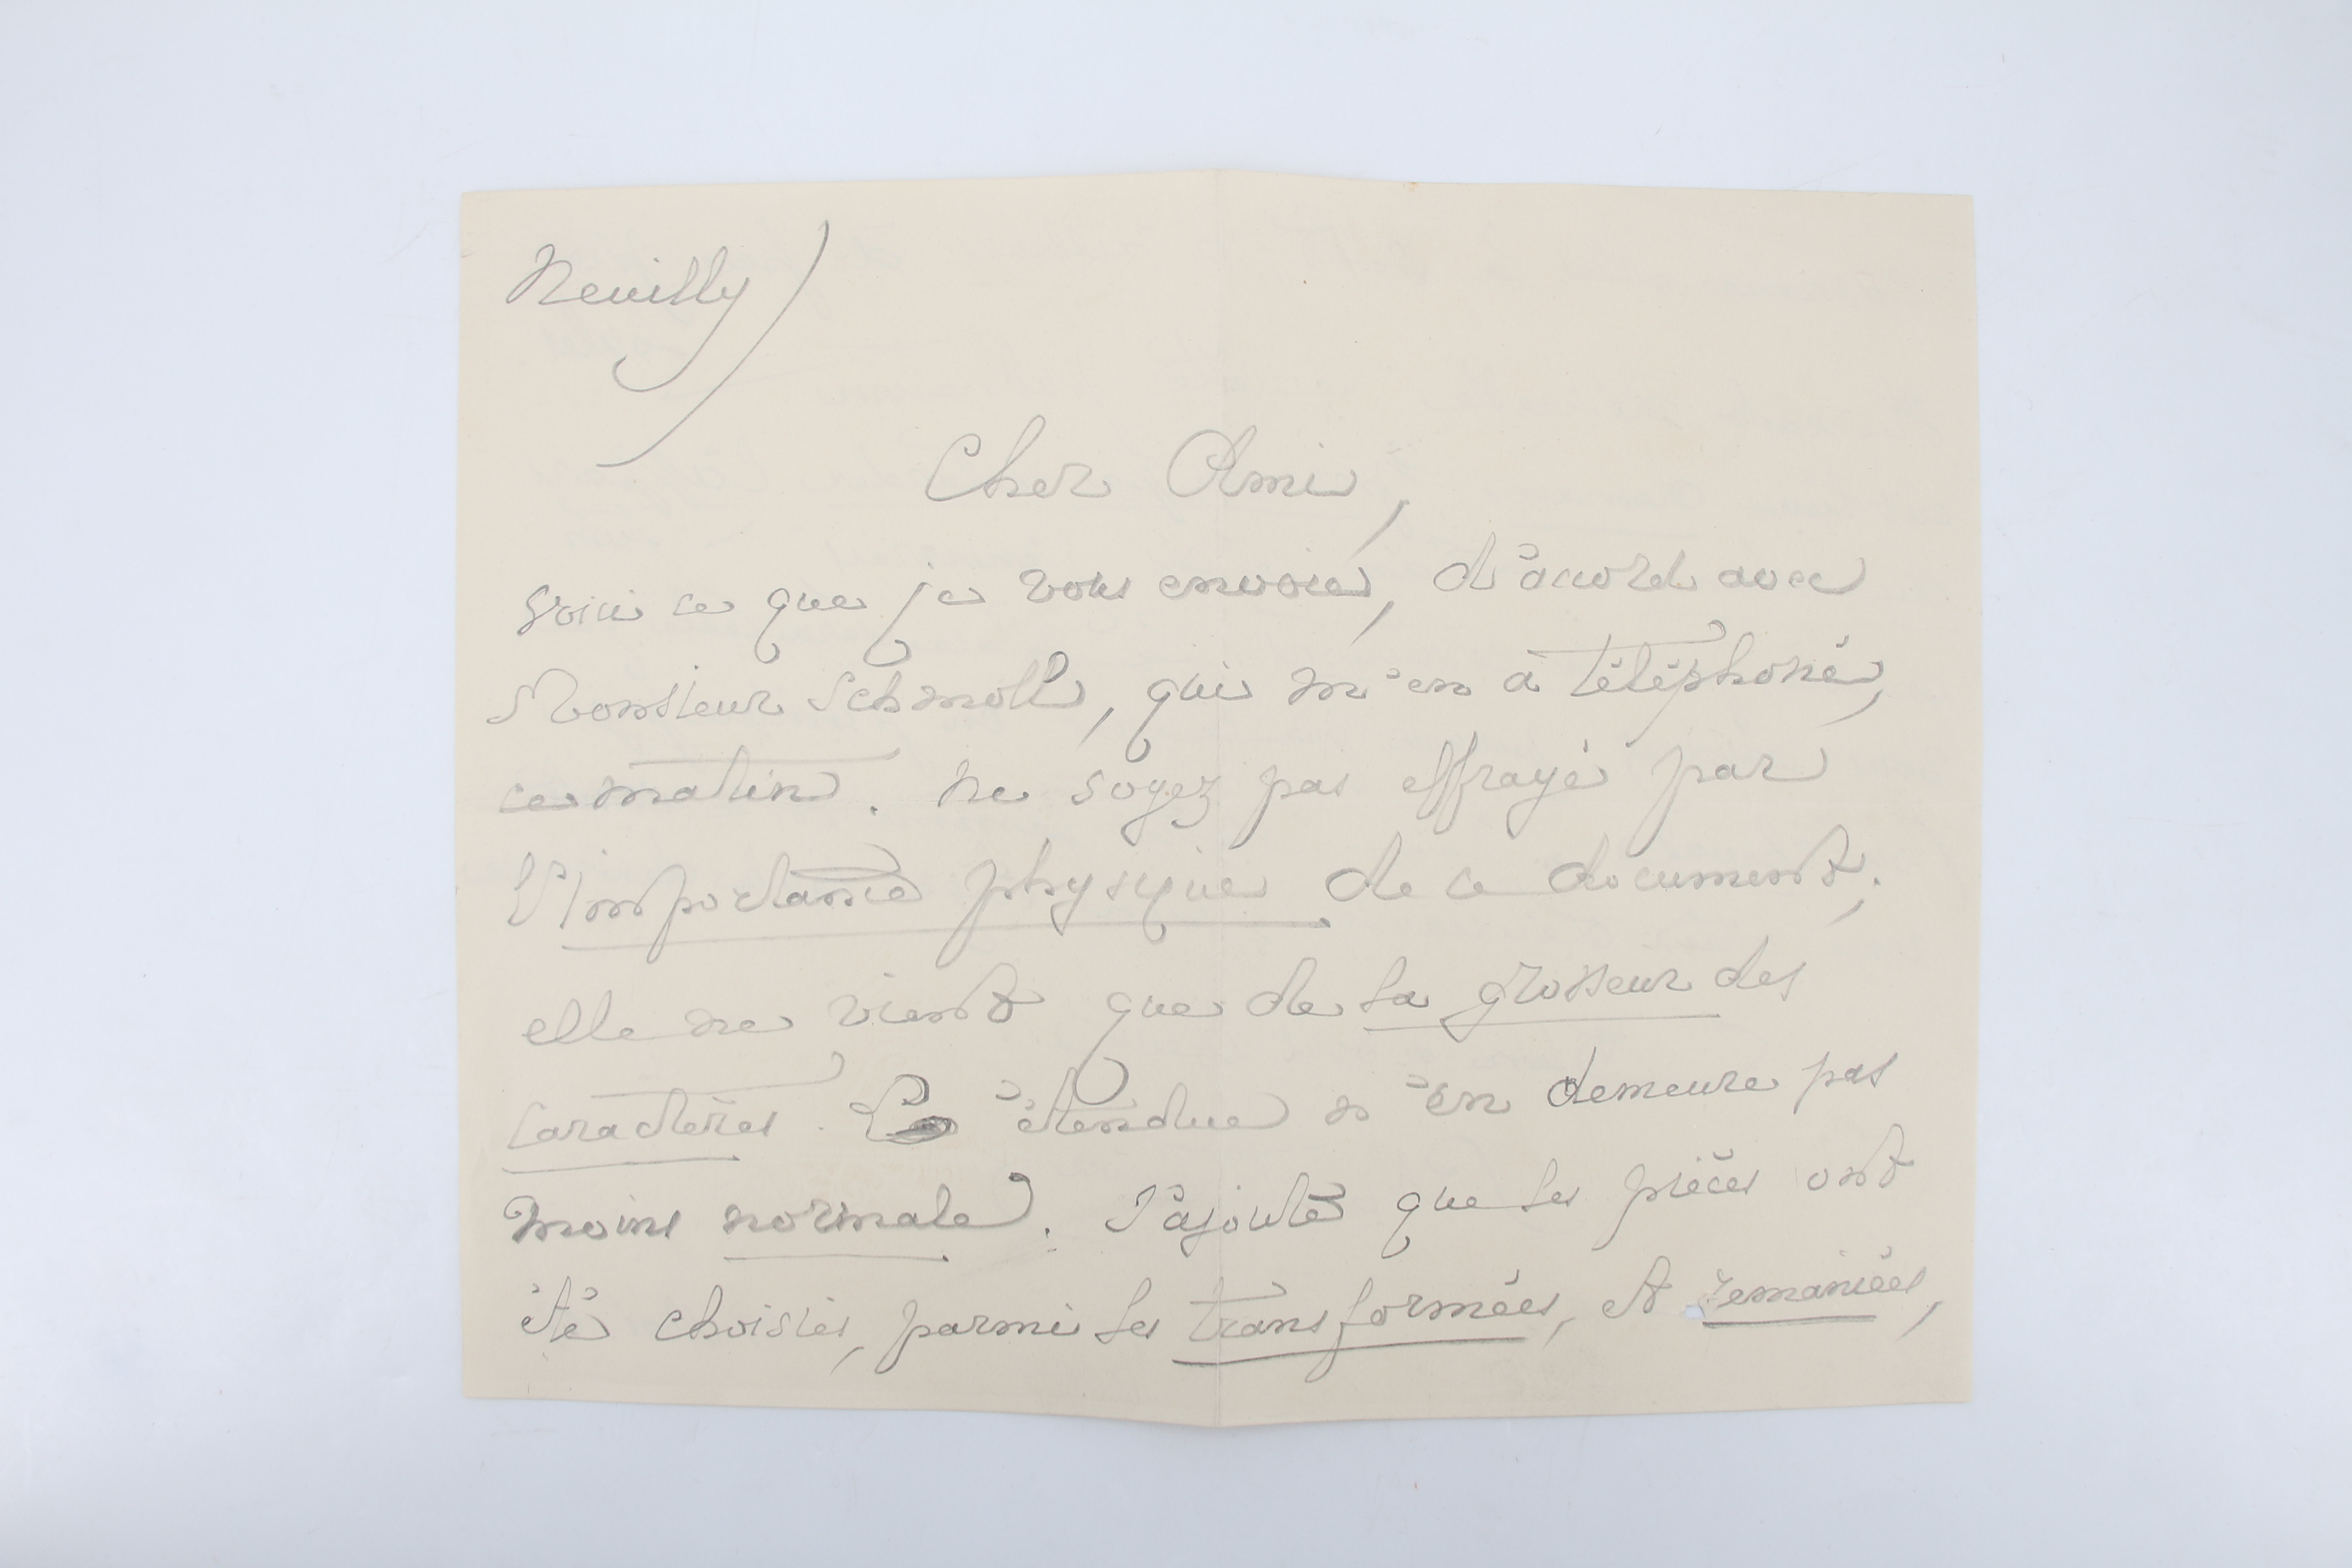 Neuilly
Cher Ami,
Voici ce que je vous envoie, d'accord avec
Monsieur Schmoll, qui m'en a téléphoné,
ce matin. Ne soyez pas effrayé par
l'importance physique de ce document;
elle ne vient que de la grosseur des
caractères. L'étendue n'en demeure pas
moins normale. J'ajoute que les pièces ont
été choisies, parmi les transformées, et remaniées,